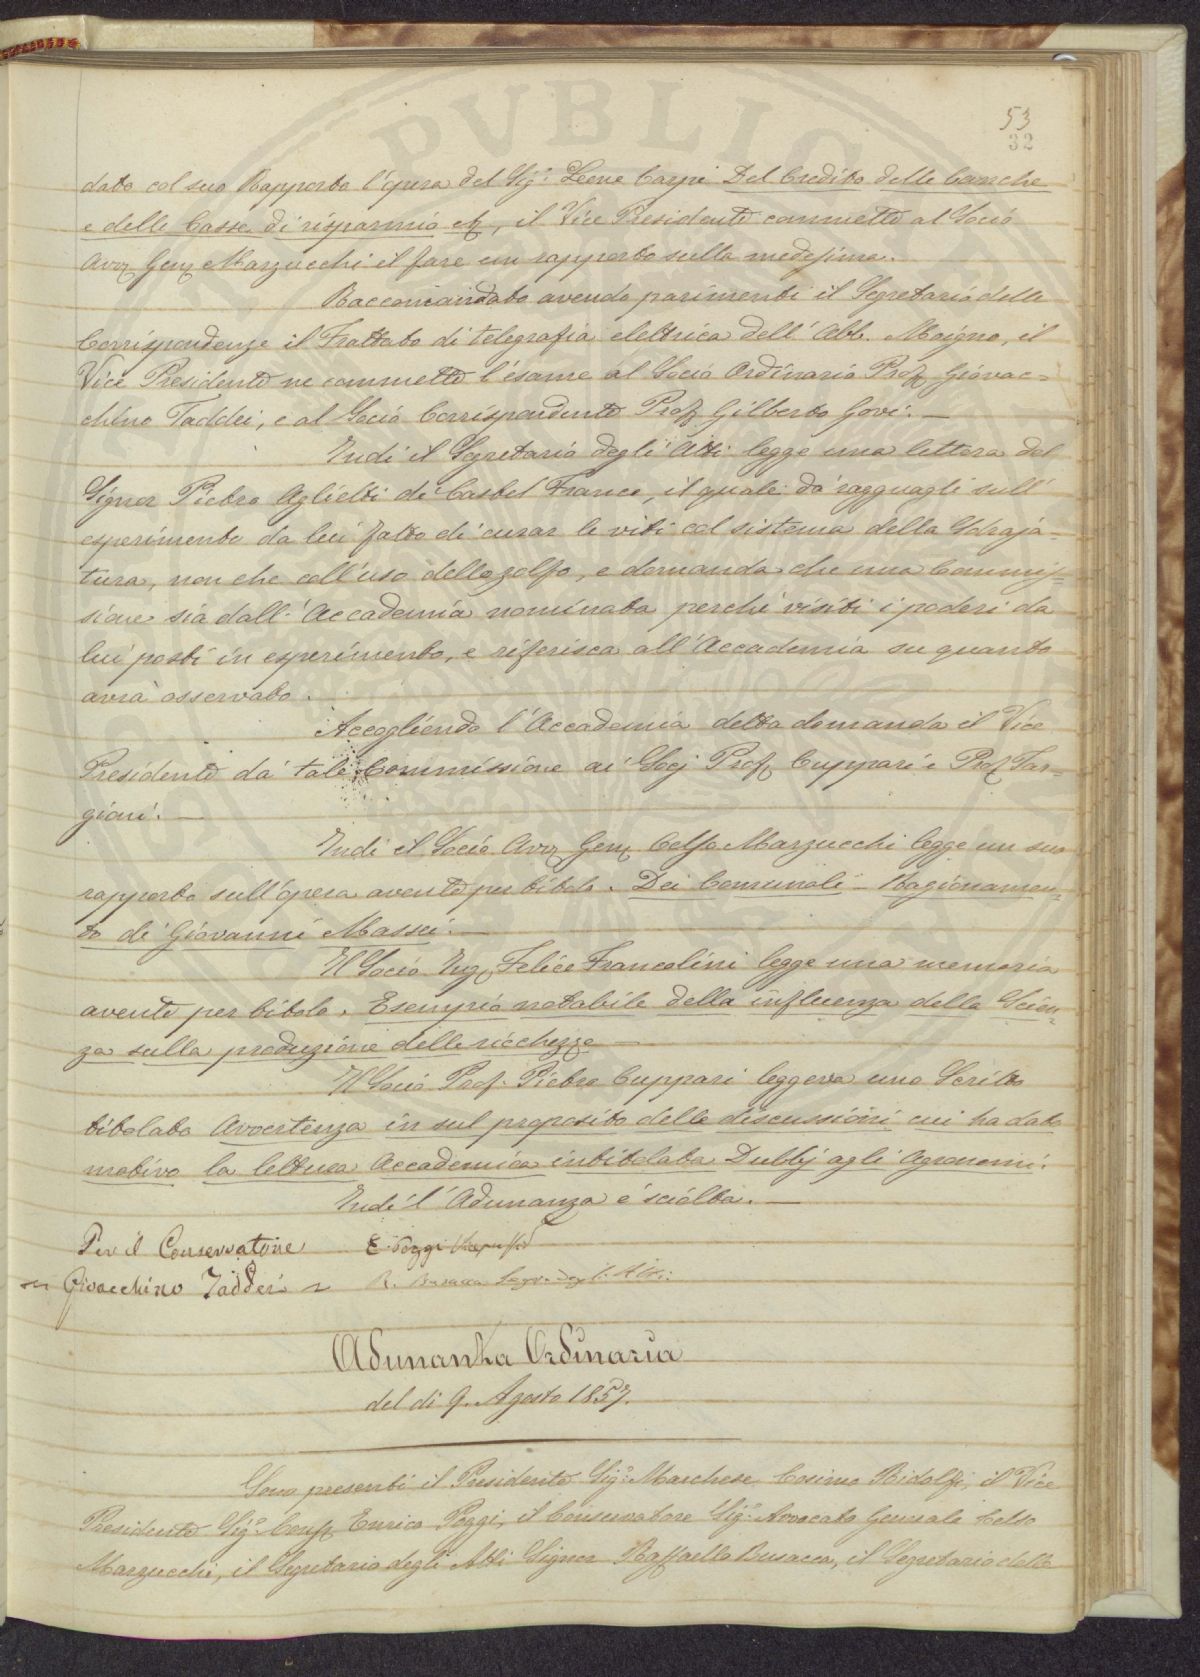 53
32
dato col suo Rapporto l'opera del Sig.r Leone Carpi Del Credito delle banche
e delle Casse di risparmio ec, il Vice Presidente commette al Socio
Avv. Gen. Marzucchi il fare un rapporto sulla medesima.
Raccomandato avendo parimenti il Segretario delle
Corrispondenze il Trattato di telegrafia elettrica dell'Abb. Moigno, il
Vice Presidente ne commette l'esame al Socio Ordinario Prof. Giovac=
chino Taddei, e al Socio Corrispondente Prof. Gilberto Govi. —
Indi il Segretario degli Atti legge una lettera del
Signor Pietro Aglietti di Castel Franco, il quale dà ragguagli sull'
esperimento da lui fatto di curar le viti col sistema della
tura, non che coll'uso dello zolfo, e domanda che una Commis=
sione sia dall'Accademia nominata perchè visiti i poderi da
lui posti in esperimento, e riferisca all'Accademia su quanto
avrà osservato.
Accogliendo l'Accademia detta domanda il Vice
Presidente dà tale Commissione ai Socj Prof. Cuppari e Prof. Tar=
gioni. —
Indi il Socio Avv. Gen. Celso Marzucchi legge un suo
rapporto sull'opera avente per titolo. Dei Comunali – Ragionamen=
to di Giovanni Massei. —
Il Socio Ing. Felice Francolini legge una memoria
avente per titolo. Esempio notabile della influenza della Scien=
za sulla produzione delle ricchezze —
Il Socio Prof. Pietro Cuppari leggeva uno Scritto
titolato Avvertenza in sul proposito delle discussioni cui ha dato
motivo la lettura Accademica intitolata Dubbj agli Agronomi.
Indi l'Adunanza è sciolta. —
Per il Conservatore E. Poggi
Giovacchino Taddei R. Busacca Segr. degli Atti.
Adunanza Ordinaria
del dì 9. Agosto 1857.
Sono presenti il Presidente Sig.r Marchese Cosimo Ridolfi, il Vice
Presidente Sig.r Cons. Enrico Poggi, il Conservatore Sig.r Avvocato Generale Celso
Marzucchi, il Segretario degli Atti Signor Raffaello Busacca, il Segretario delle